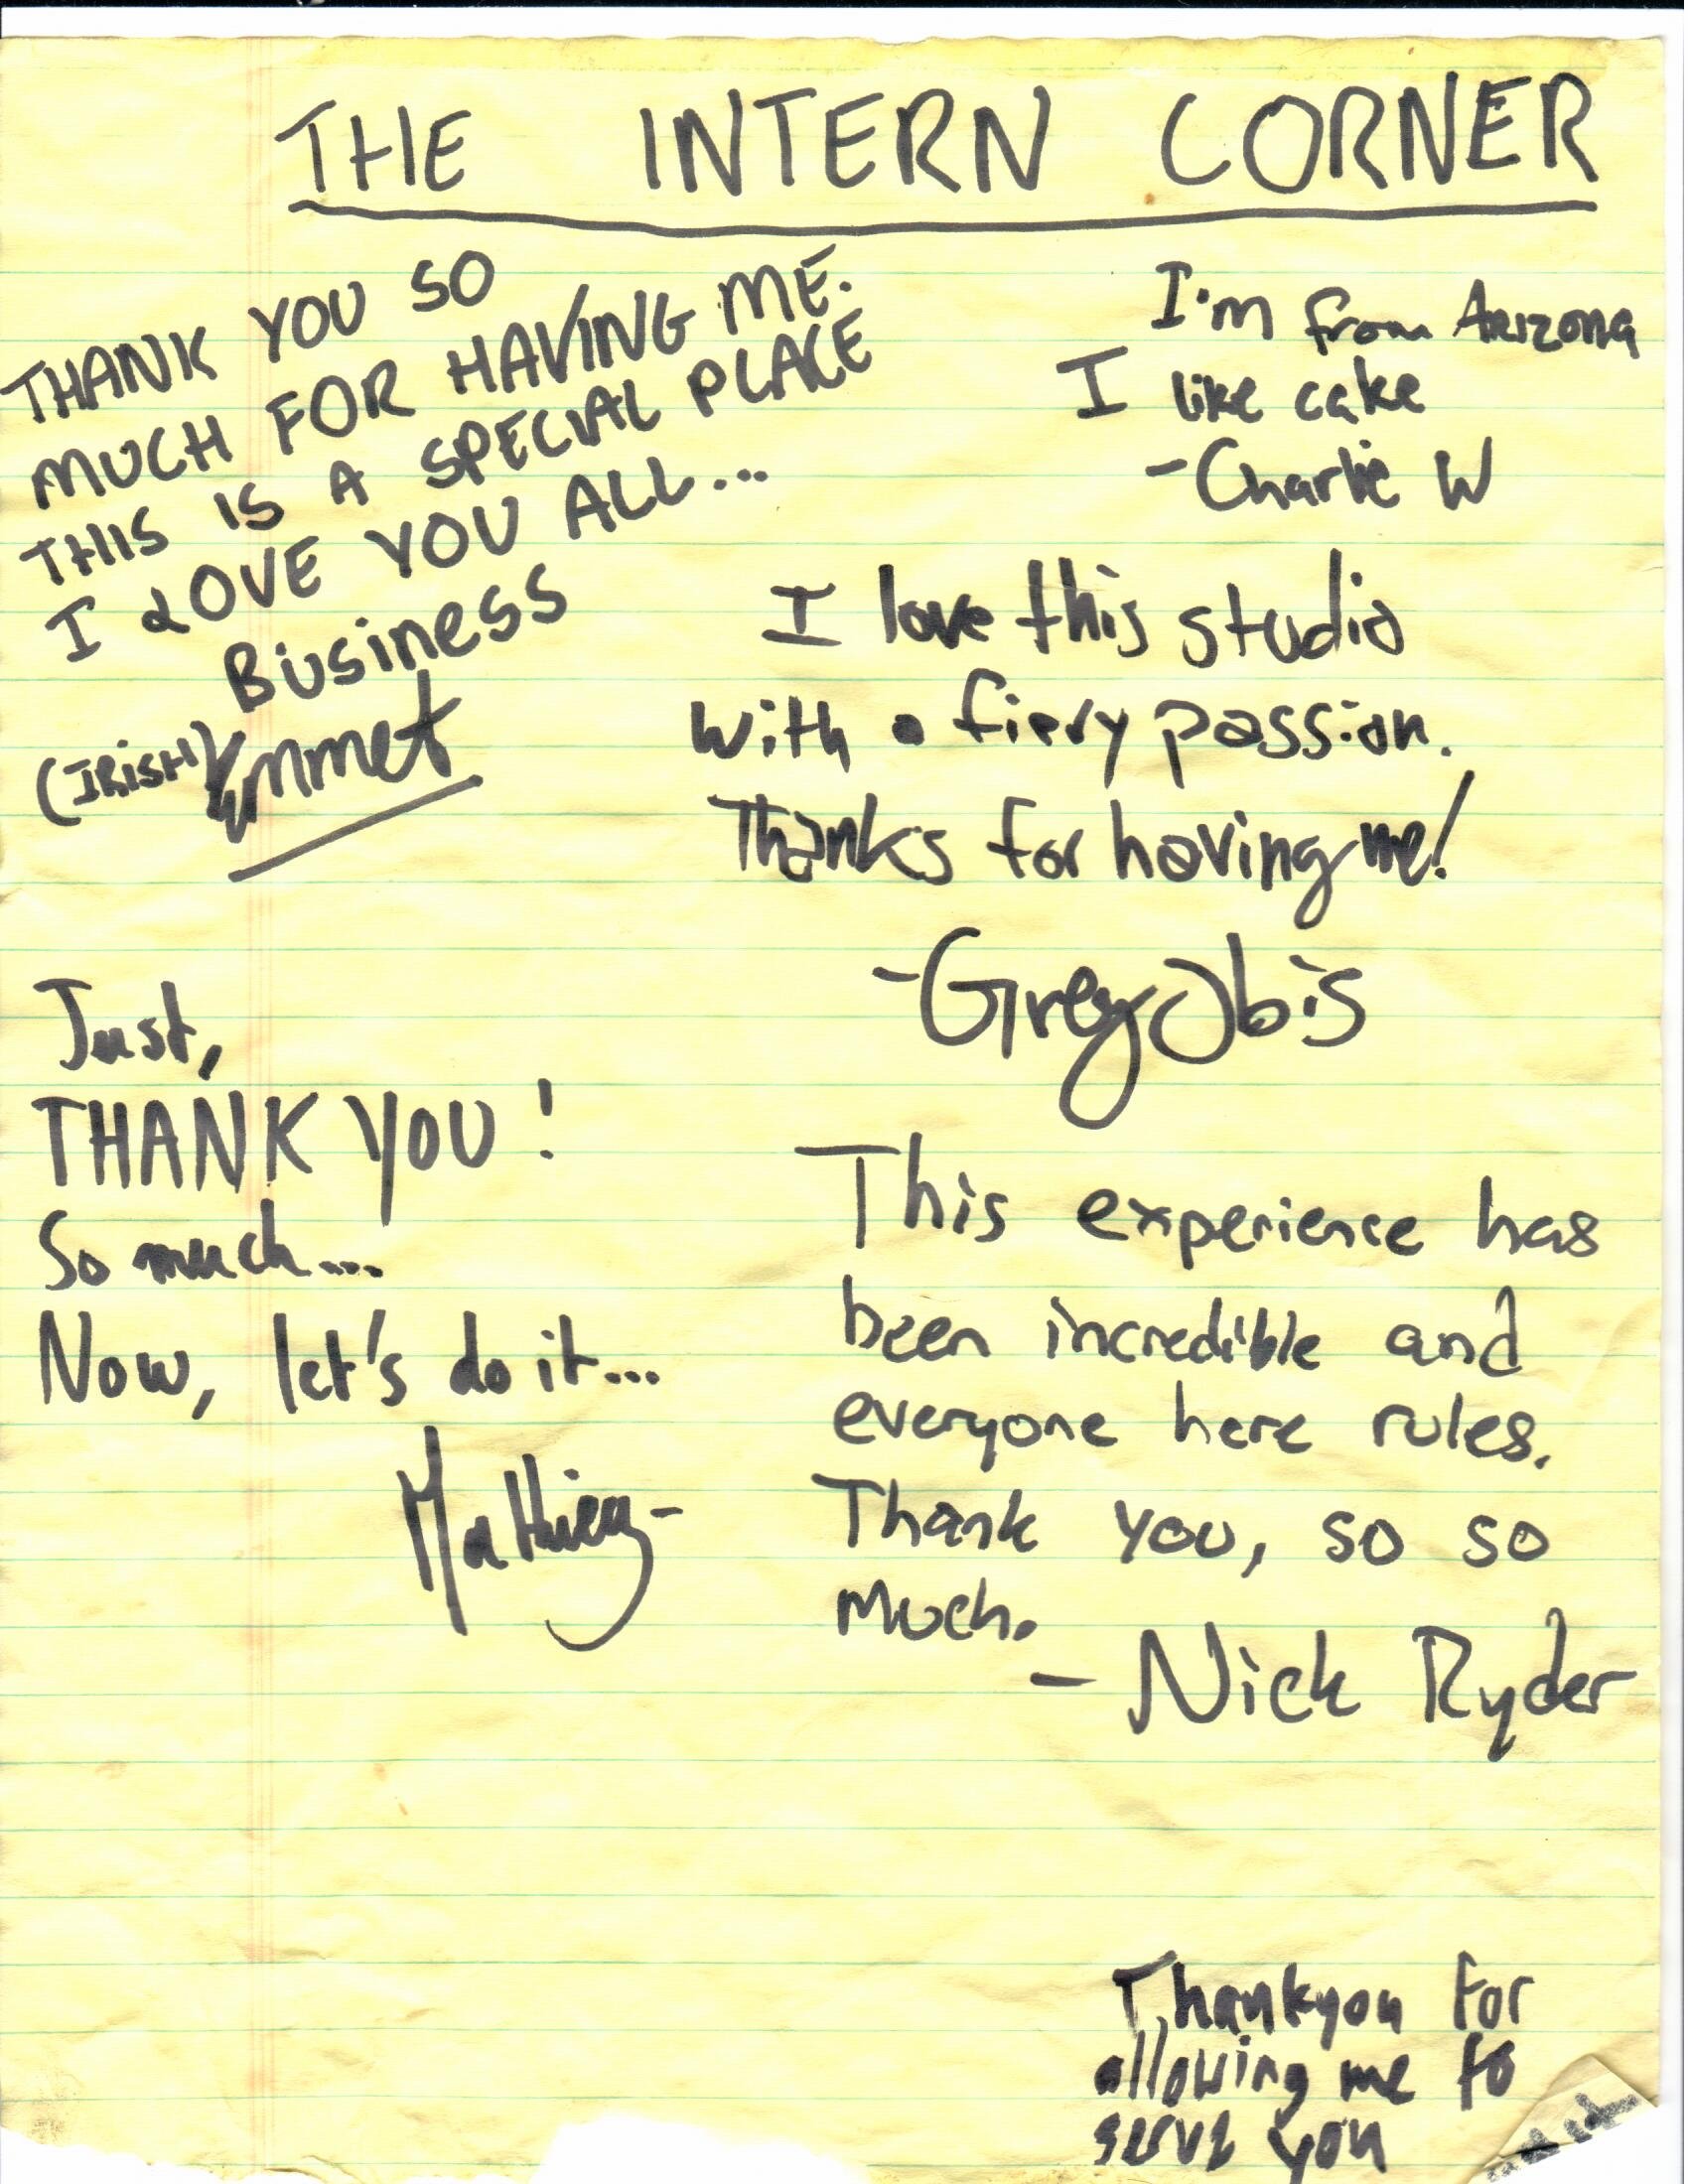 THE INTERN CORNER
THANK YOU SO
MUCH FOR HAVING ME.
THIS IS A SPECIAL PLACE
I LOVE YOU ALL...
BUSINESS
(IRISH) Emmet
I'm from Arizona
I like cake
-Charlie W
I love this studio
with a fiery passion.
Thanks for having me!
-Greg Obis
Just,
THANK YOU!
So much....
Now, let's do it...
Mathieu-
This experience has
been incredible and
everyone here rules.
Thank you, so so
much.
- Nick Ryder
Thankyou for
allowing me to
serve you